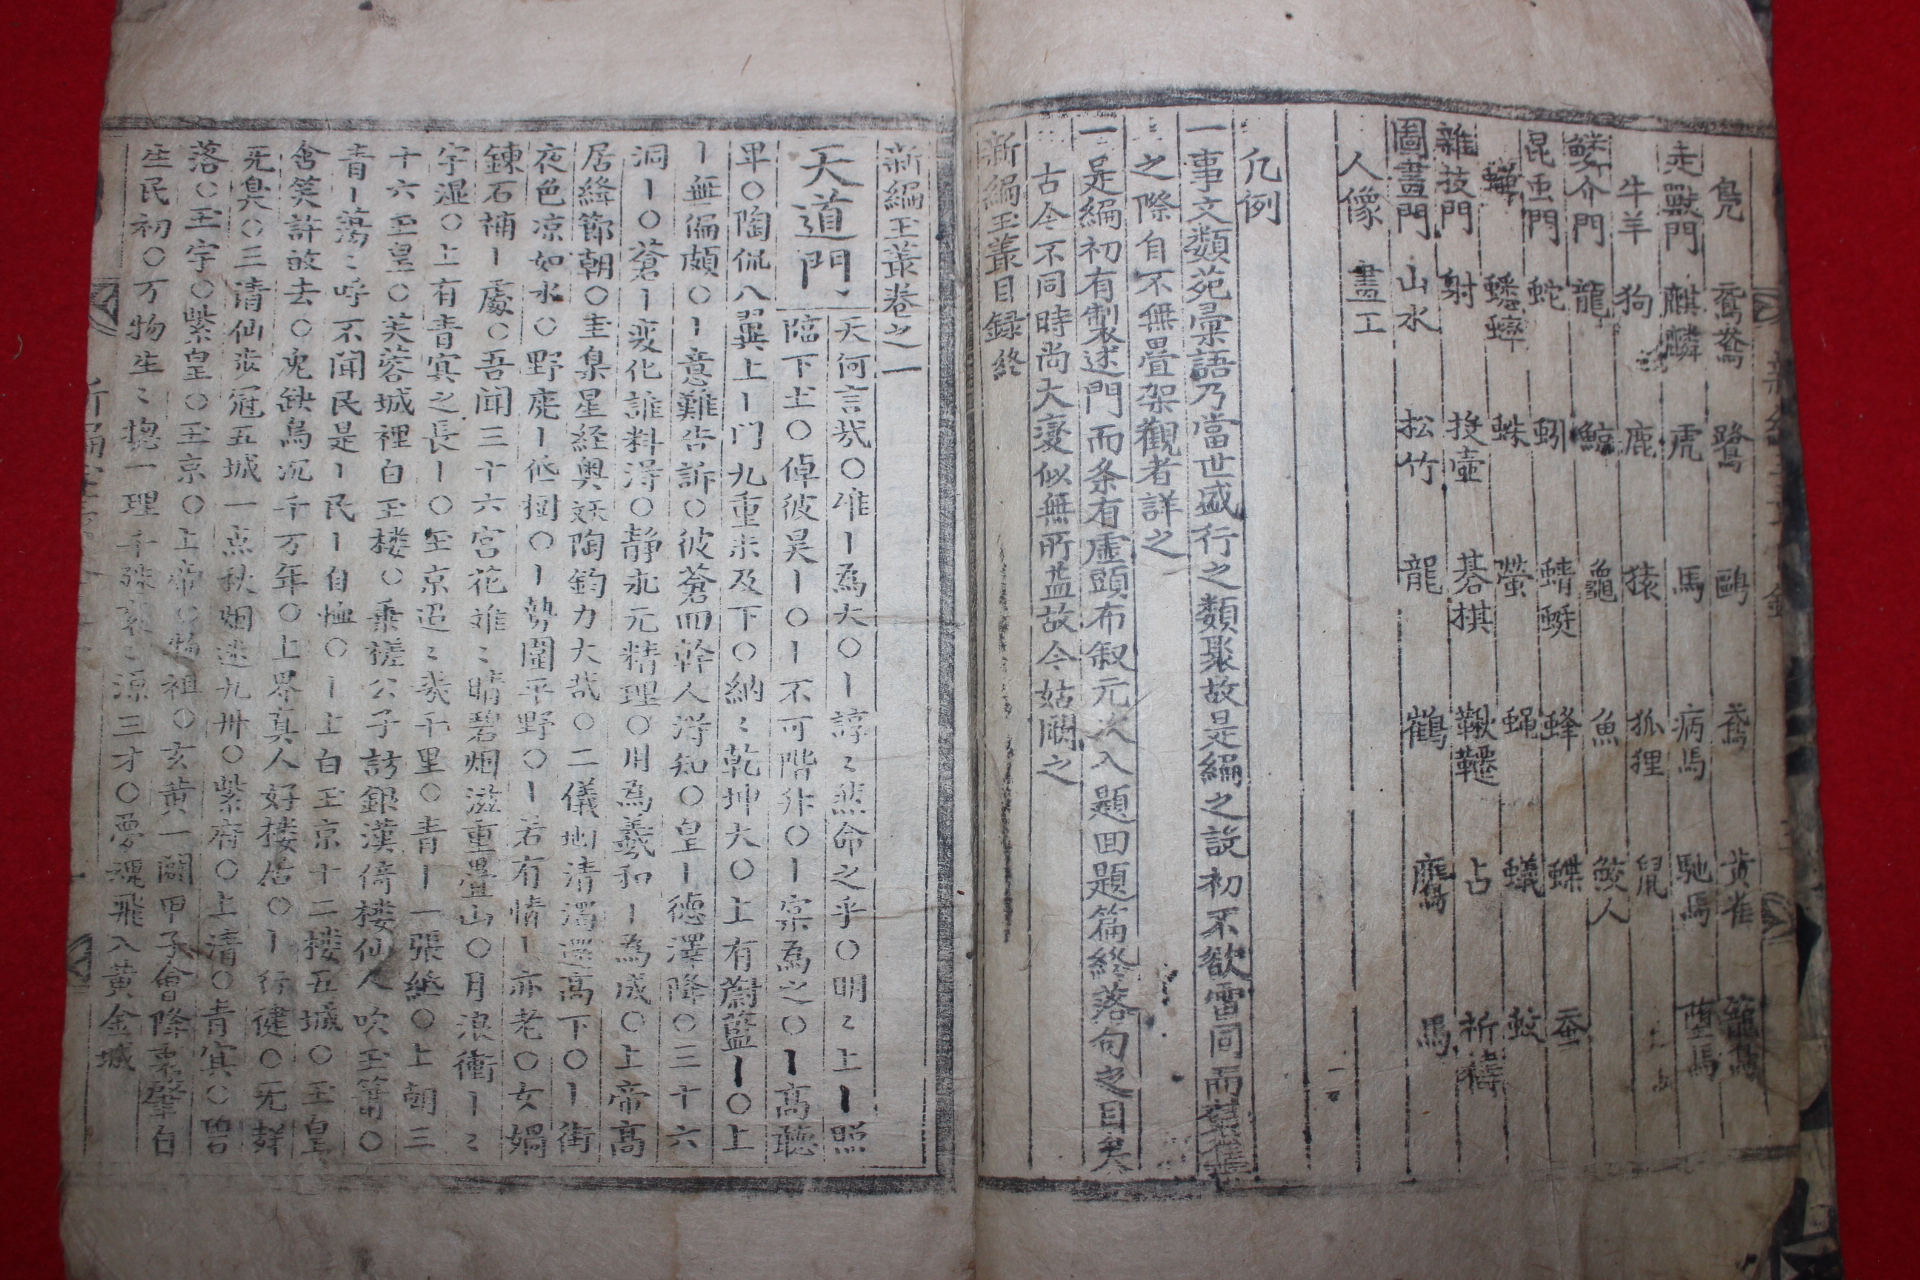 鳧 鴛鴦 鷺 鷗 鴦 黃雀 籠鳥
走獸門 麒麟 虎 馬 病馬 馳馬 墮馬
牛羊 狗 鹿 猿 狐狸 鼠
鱗介門 龍 鯨 龜 魚 鮫人
昆虫門 蛇 蚓 蜻蜓 蜂 蝶 蚕
蟬 蟋蟀 蛛 螢 蝇 蟻 蚊
雜技門 射 投壺 碁棋 鞦韆 占 祈禱
圖畫門 山水 松竹 龍 鶴 鷹 馬
人像 畫工
凡例
一事文類苑彙語乃當世盛行之類聚故是編之設初不欲雷同而
之際自不無疊架觀者詳之
一是編初有製述門而条有虛頭布叙元次入題回題篇終落句之目矣
古今不同時尚大変似無所益故今姑闕之
新編玉叢目録終
新編玉叢卷之一
天道門
天何言哉○唯ㅣ為大○ㅣ諄〻然命之乎○明〻上ㅣ照
臨下土○倬彼昊ㅣ○ㅣ不可階升○ㅣ寔為之○ㅣ高聽
卑○陶侃八翼上ㅣ门九重未及下○納〻乾坤大○上有蔚藍ㅣ○上
ㅣ無偏頗○ㅣ意難告訴○彼蒼回幹人得知○皇ㅣ德澤降○三十六
洞ㅣ○蒼ㅣ変化誰料得○靜乖元精理○用為羲和ㅣ為成○上帝高
居絳節朝○圭臬星経奥妖陶鈞力大哉○二儀清濁還高下○ㅣ街
夜色凉如水○野鹿ㅣ低樹○ㅣ勢圍平野○ㅣ若有情ㅣ亦老○女媧
鍊石補ㅣ處○吾聞三十六宮花雖〻晴碧烟滋重疊山○月浪衝ㅣ〻
宇湿○上有青冥之長ㅣ○至京迢〻幾千里○青ㅣ一張絰○上朝三
十六玉皇○芙蓉城裡白玉楼○乗槎公子訪銀漢倚楼仙人吹玉簫○
青ㅣ蕩〻呼不聞民是ㅣ民ㅣ自極○ㅣ上白玉京十二楼五城○玉皇
含笑許放去○兎缺烏沉千万年○上界真人好楼居○ㅣ行健○无群
无臭○三清仙步冠五城一点秋烟迷九州○紫府○上清○青冥○碧
落○玉宇○紫皇○玉京○上帝○物祖○玄黄一闢甲子會降衷肇自
生民初○万物生〻揔一理千殊〻源三才○夢魂飛入黄金城